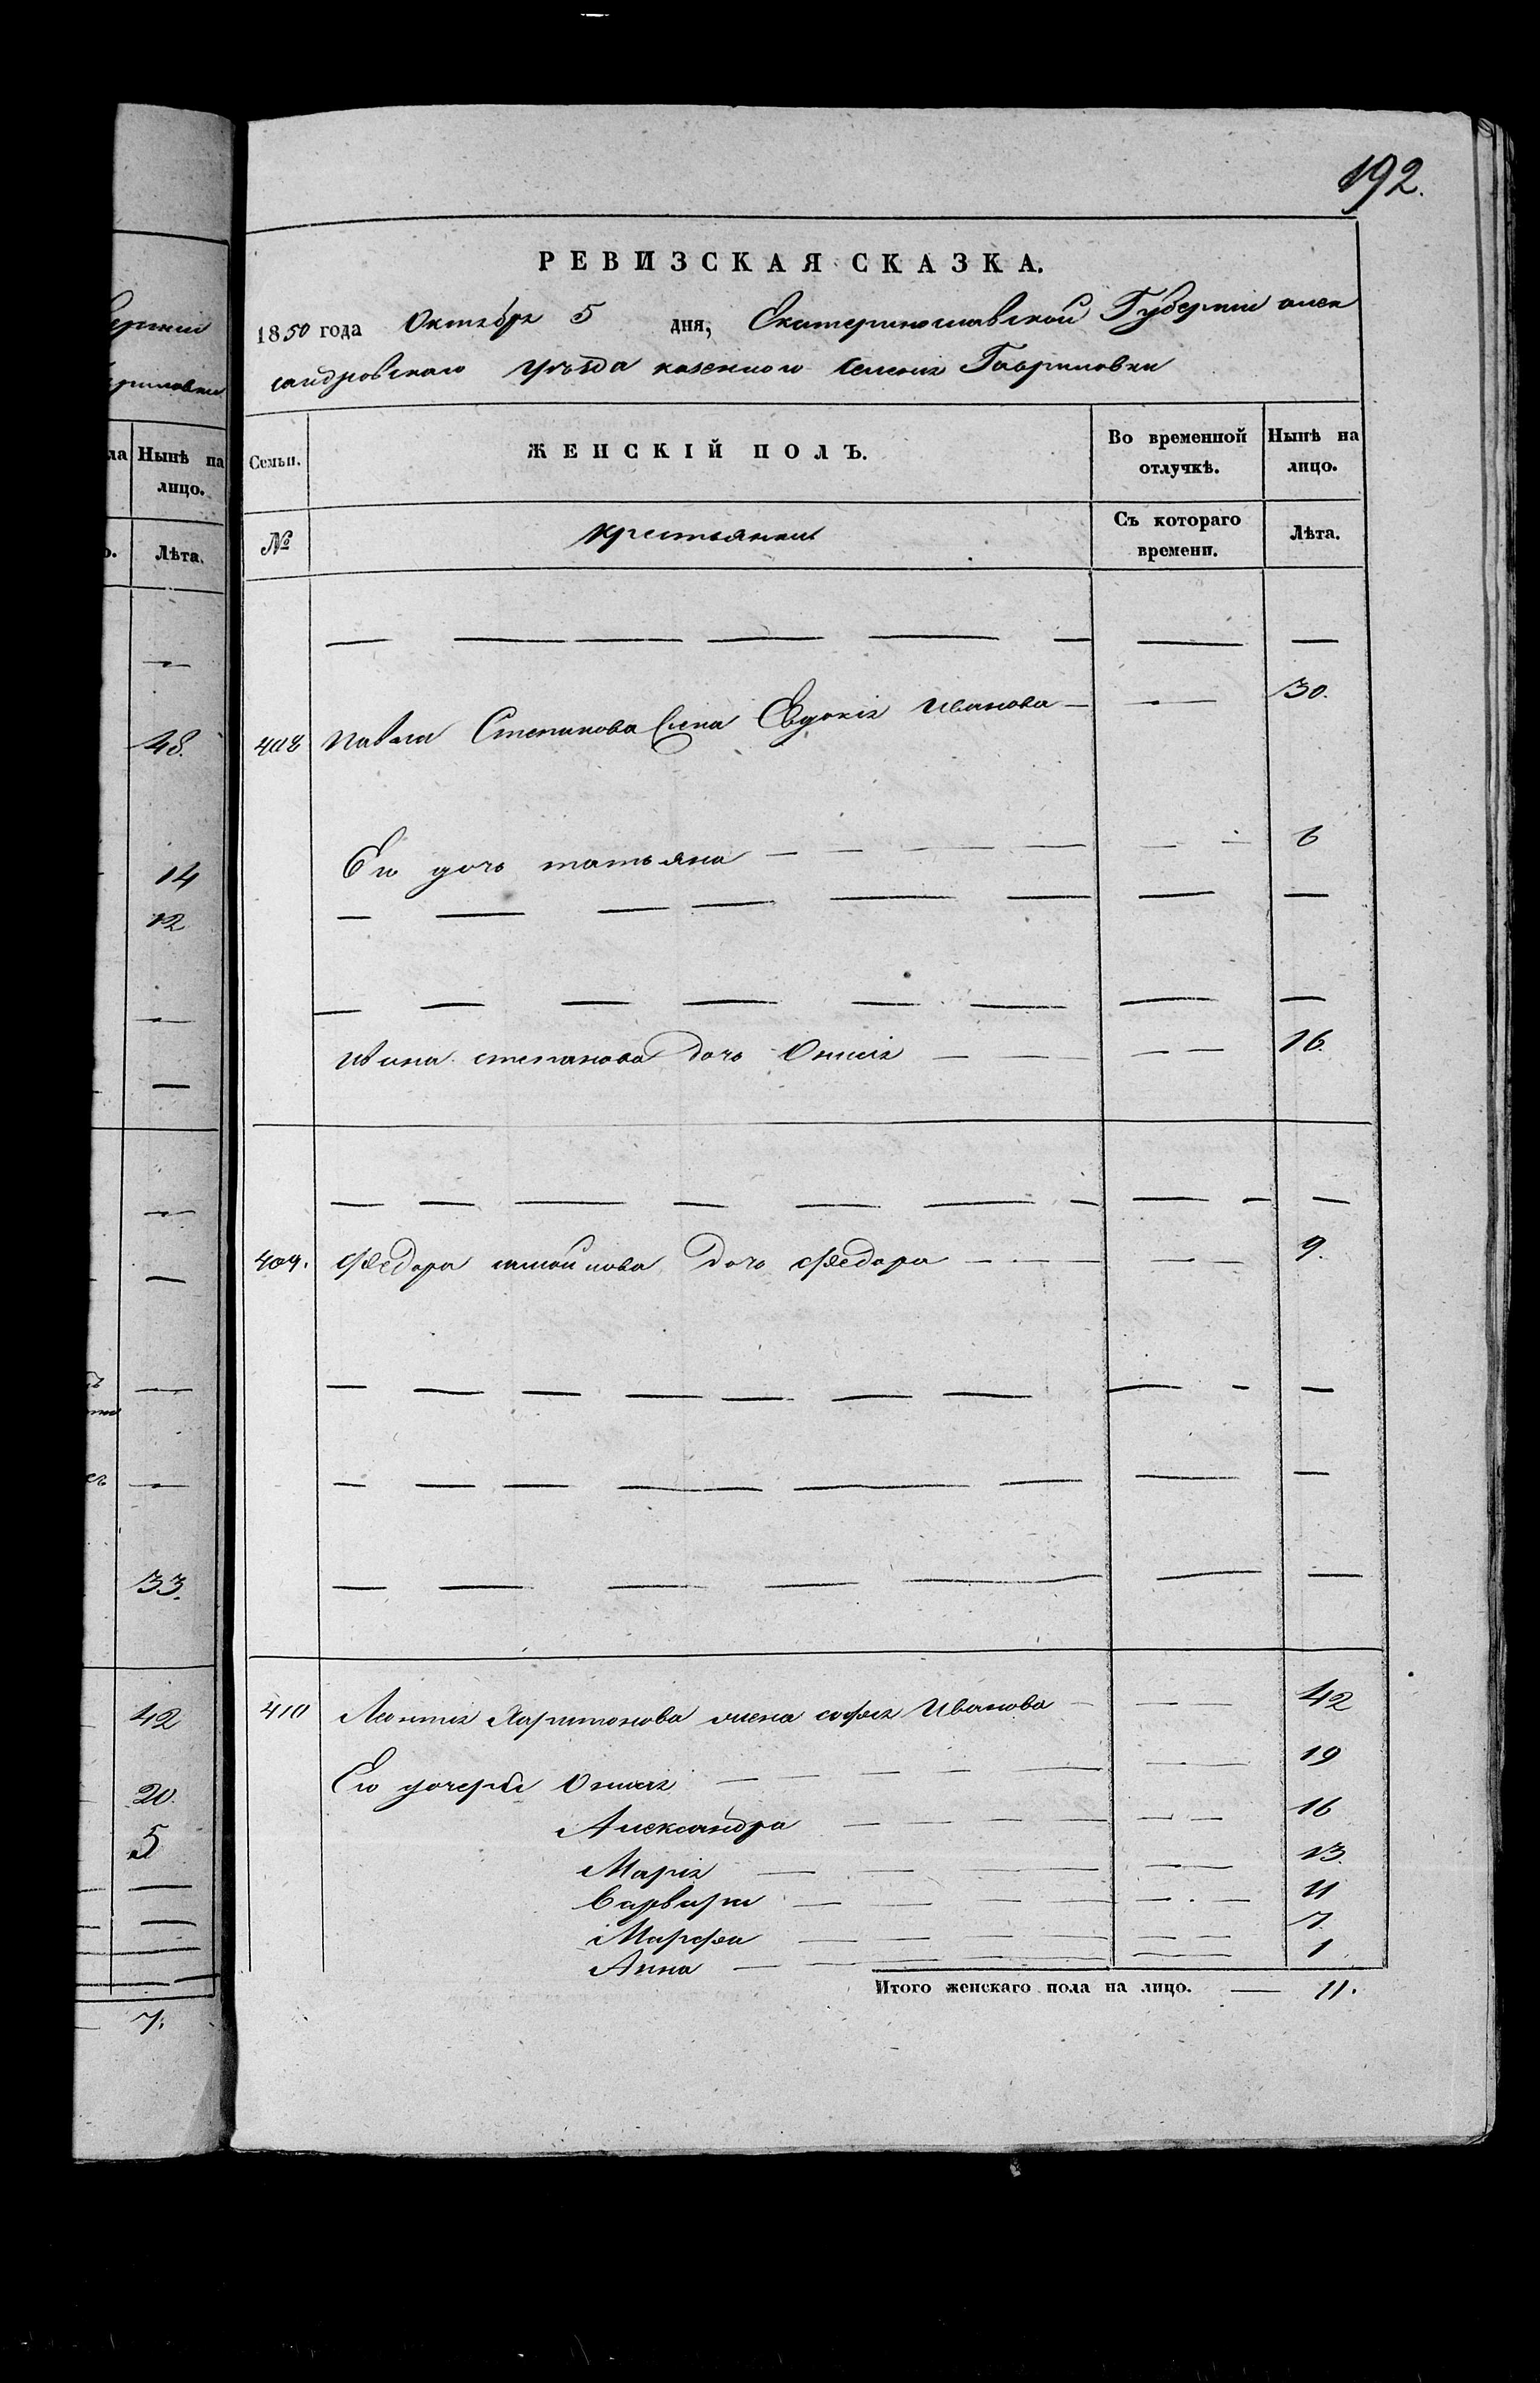 192.
РЕВИЗСКАЯ СКАЗКА.
1850 года Октября 5 дня, Екатеринославской Губернии алек
сандровскаго уѣзда казенного селения Гавриловки
Семьи.
ЖЕНСКІЙ ПОЛЪ.
Во временной отлучкѣ.
Нынѣ на лицо.
№
крестьянки
Съ котораго времени.
Лѣта.
408 Павла Степанова жена Евдокия Иванова — — 30.
Его дочь татьяна — — 6
Ивана степанова дочь — — 16.
409. Федора дочь федора — — 9.
410 Леонтия Харитонова жена софия Иванова — — 42
Его дочери — — 19
Александра — — 16
Мария — — 13.
Варвара — — 11
Марфа — — 7
Анна — — 1
Итого женскаго пола на лицо. — 11.
Нынѣ на лицо.
Лѣта.
48.
14
12
33.
42
20.
5
7.